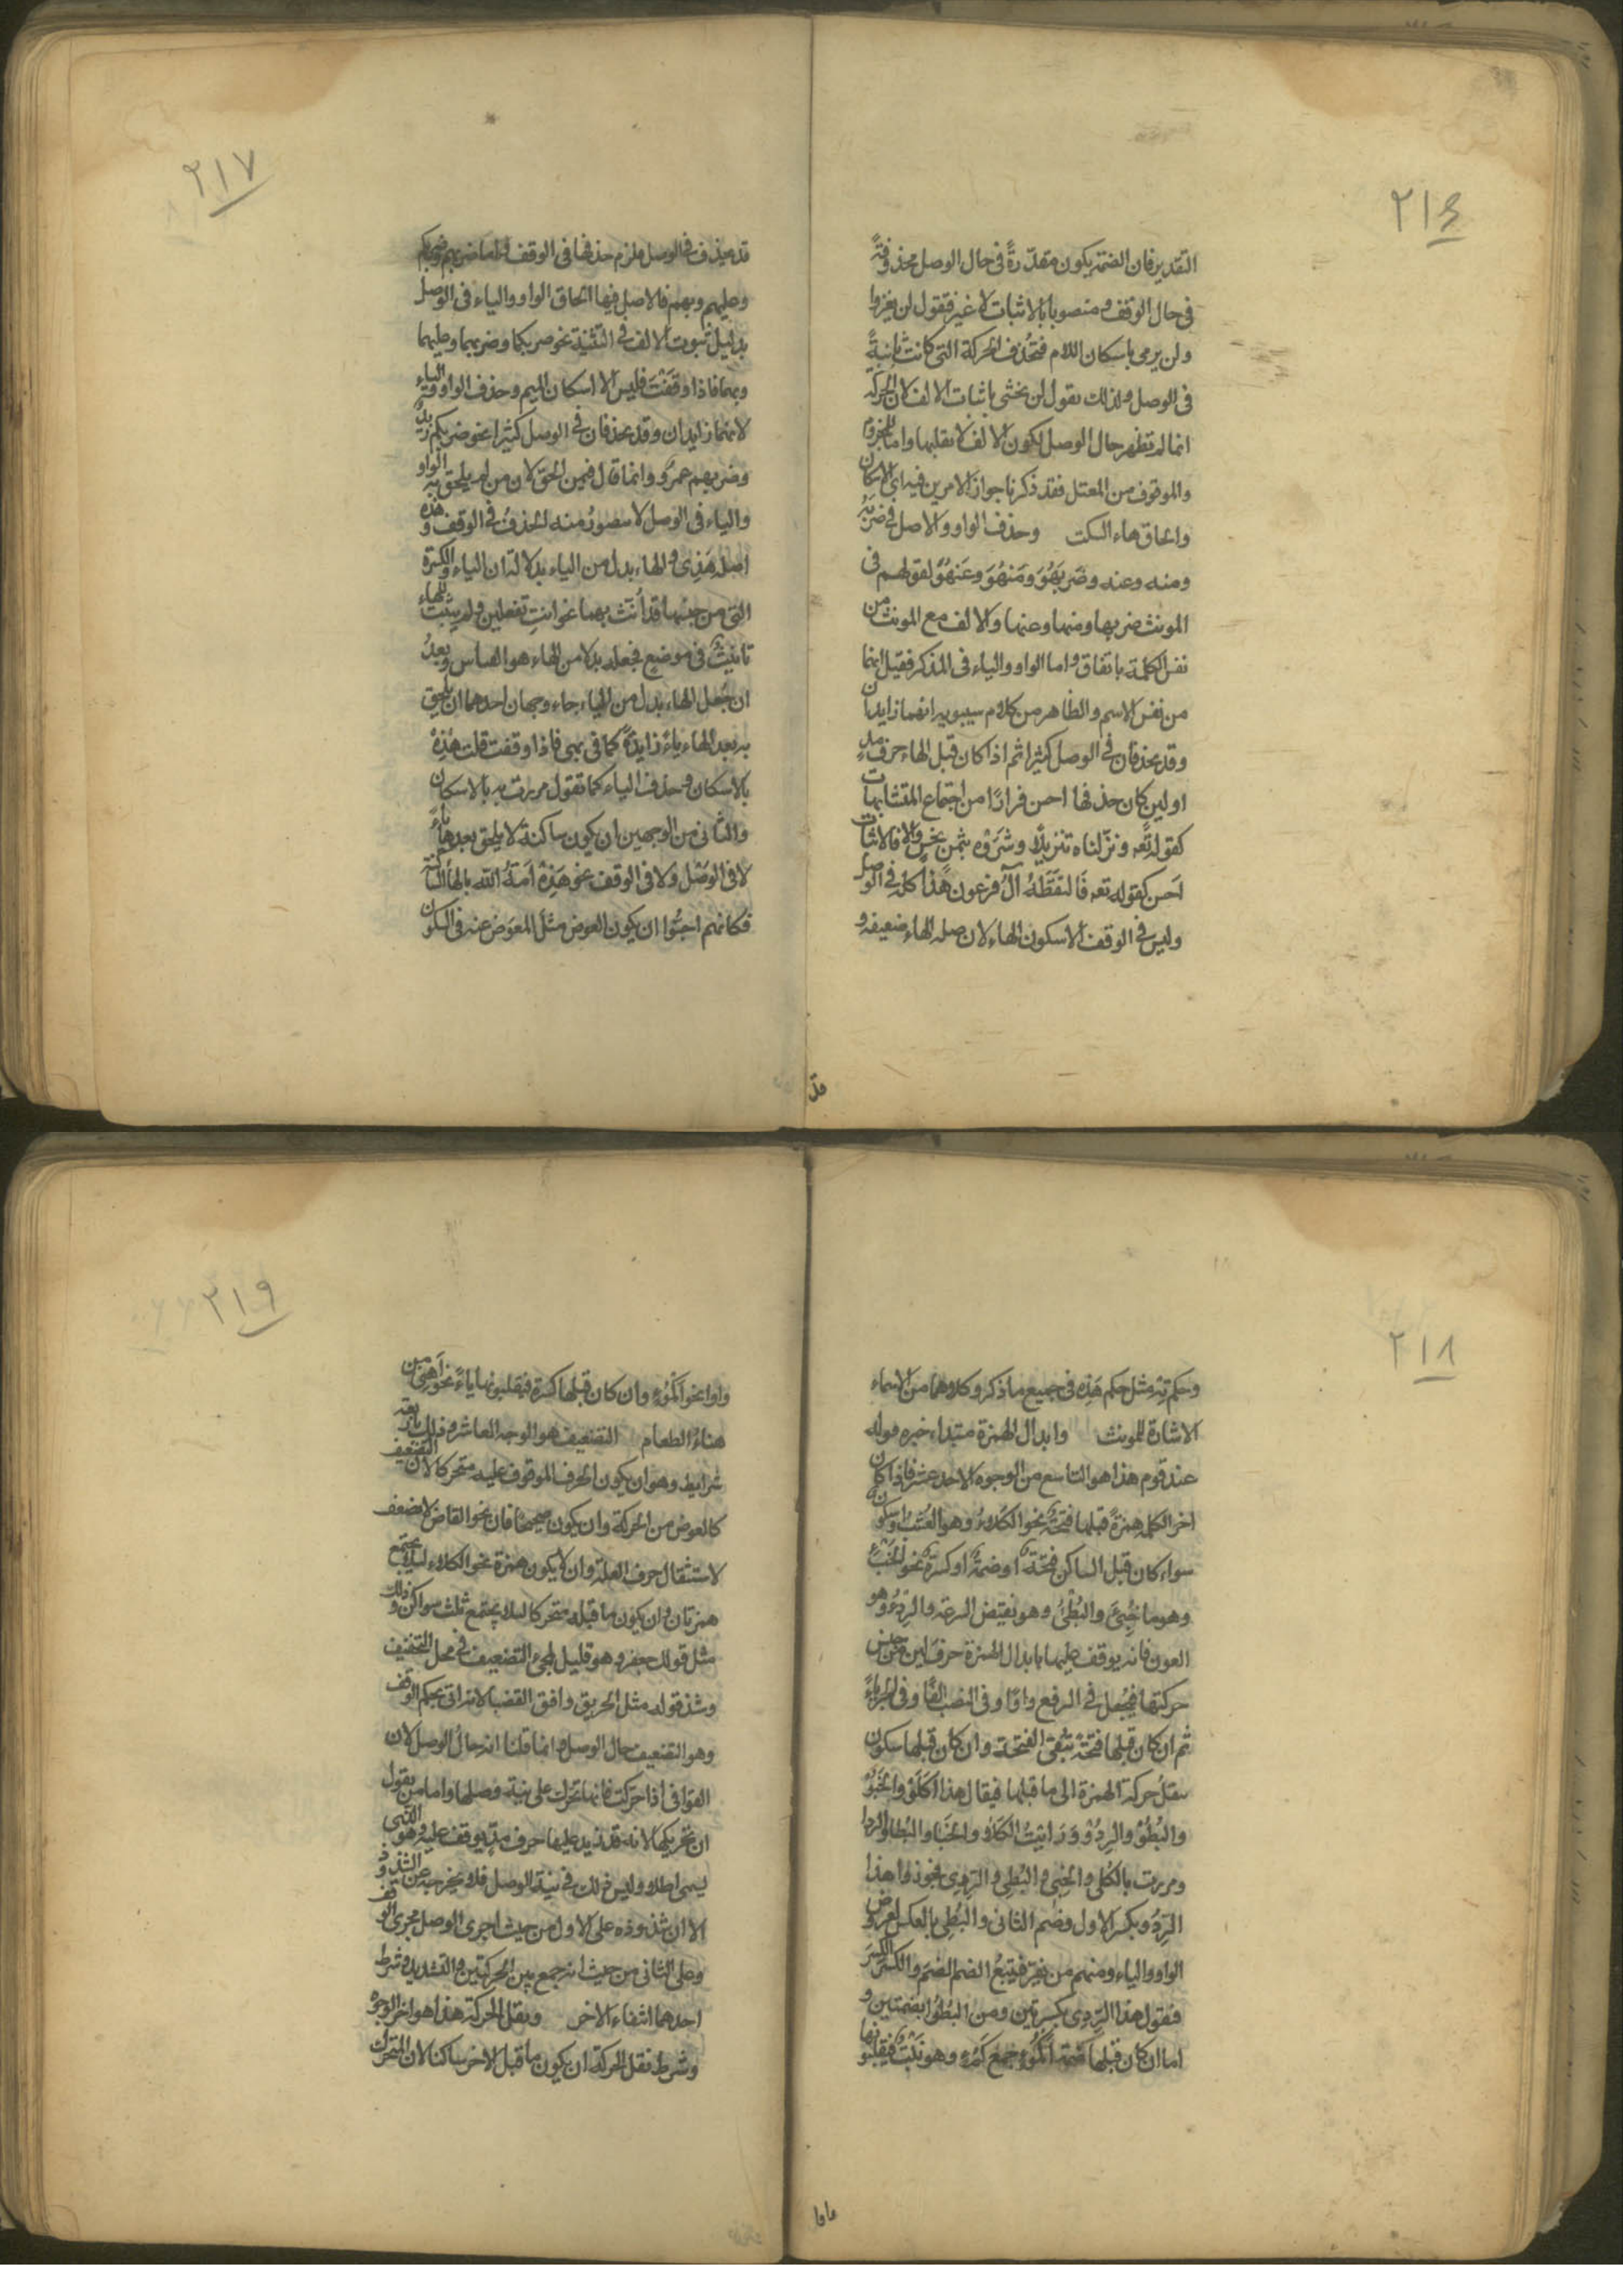 ٢١٦
التقدير فان الضمة يكون مقدرةً في حال الوصل محذوفةً
في حال الوقف و منصوبا بالاثبات لا غير فتقول لن يغزوا
ولن يرمى باسكان اللام فتحذف الحركة التي كانت ثابتةً
في الوصل ولذلك تقول لن يخشى باثبات الالف لان الحركة
انما لم تظهر حال الوصل لكون الالف لا تقلبها واما المجزوم
والموقوف من المعتل فقد ذكرنا جواز الامرين فيه اي الاسكان
والحاق هاء السكت وحذف الواو والاصل في ضربه
ومنه وعنه وضَربَهُوَ ومَنهُوَ وعَنهُوَ لقولهم في
المونث ضربها ومنها وعنها والالف مع المونث من
نفس الكلمة باتفاق واما الواو والياء في المذكر فقيل انما
من نفس الاسم والظاهر من كلام سيبويه انهما زايدان
وقد يحذفان في الوصل كثيرا ثم اذا كان قبل الهاء حرف مد
او لين كان حذفها احسن فرارًا من اجتماع المتشابهات
كقوله تعه ونزلناه تنزيلًا وشرَوه بثمن بخس والا فالاثبات
احسن كقوله تعه فَالتَقَطَهُ آلُ فرعون هذا كله في الوصل
وليس في الوقف الا سكون الهاء لان صله الهاء ضعيفه و
قد
٢١٧
قد يحذف في الوصل فلزم حذفها في الوقف واما ضربهم وضربكم
وعليهم وبهم فالاصل فيها الحاق الواو والياء في الوصل
بدليل ثبوت الالف في التثنية نحو ضربكما وضربهما وعليهما
وبهما فاذا وقفتَ فليس الا اسكان الميم وحذف الواو والياء
لانهما زايدان وقد يحذفان في الوصل كثيرا نحو ضربكم زيدٌ
وضربهم عمرٌو وانما قال فيمن الحق لان من لم يلحق به الواو
والياء في الوصل لا يتصورُ منه الحذفُ في الوقف و هذه
اصلُه هَذِى والهاء بدل من الياء بدلالة ان الياء والكسرة
التي من جنسها قد أُنّث بهما نحو انتِ تفعلين ولم يثبت للهاء
تانيثٌ في موضع فجعله بدلا من الهاء هو القياس وبعدُ
ان جُعل الهاء بدل من الياء جاء وجهان احدهما ان يُلحِق
به بعد الهاء ياءً زايدةً كما في بهى فاذا وقفت قلت هٰذِهْ
بالاسكان وحذف الياء كما تقول مررت به بالاسكان
والثاني من الوجهين ان يكون ساكنة لا يلحق بعدها ياءً
لا في الوَصْل ولا في الوقف نحو هَذِهْ اَمَةُ الله بالهاء الساكنة
فكانهم احبُّوا ان يكون العوض مثل المعوض عنه في السكون
٢١٨
وحكم تِهْ مثل حكم هَذِه في جميع ما ذكر وكلاهما من الاسماء
الاشارة للمونث وابدال الهمزة مبتداء خبره قوله
عند قوم هذا هو التاسع من الوجوه الاحد عشر فاذا كان
اخر الكلمة همزةً قبلها فتحةٌ نحو الكَلاءُ وهو العُشب او سكون
سواء كان قبل الساكن فتحة او ضمة او كسرة نحو الخَبْءُ
وهو ما خُبِئَ والبُطْئُ وهو نقيض السرعة والرِدْءُ وهو
العون فانه يوقف عليها بابدال الهمزة حرفَ لين من جنس
حركتها فيُجعل في الرفع واوًا وفي النصب الفًا وفي الجر ياءً
ثم ان كان قبلها فتحة تبُقى الفتحة وان كان قبلها سكون
ينقلُ حركة الهمزة الى ما قبلها فيقال هذا الكَلَوْ والخَبَوْ
والبُطُوْ والرِدُوْ وَرَايتُ الكَلاَ والخَبا والبُطا والرِدا
ومررت بالكَلى والخبِى والبُطِى والرَدِى فجوزوا هذا
الرِّدُو بكسر الاول وضم الثاني والبُطِى بالعكس لعروض
الواو والياء ومنهم من يفر فيتبعُ الضم الضم والكسر الكسرَ
فيقول هذا الرِّدِى بكسرتين ومن البُطُو ابضمتين و
اما ان كان قبلها ضمة اَكْمُؤٌ جمع كَمء وهو نَبْتٌ فيقلبونها
واوا
٢١٩
واوا نحو اكمُوْ وان كان قبلها كسرة فيقلبونها ياءً نحو اَهنِى من
هناءُ الطعام التضعيف هو الوجه العاشر وذلك باربعة
شرايط وهو ان يكون الحرف الموقوف عليه متحركا لان التضعيف
كالعوض من الحركة وان يكون صحيحًا فان نحو القاضى لا يضعف
لاستثقال حرف العلة وان لا يكون همزة نحو الكلاء ليلا يجتمع
همزتان وان يكون ما قبله متحركا ليلا يجتمع ثلث سواكن وذلك
مثل قولك جعفرّ وهو قليل لمجئ التضعيف في محل التخفيف
وشذ قوله مثل الحريق وافق القصبا لانه اتى بحكم الوقف
وهو التضعيف حال الوصل وانما قلنا انه حال الوصل لان
القوافى اذا حركت فانها تحرك على نية وصلها واما من يقول
ان تحريكها لانه قد زيد عليها حرف مدٍّ يوقف عليه وهو الذي
يسمى اطلاق وليس ذلك في نية الوصل فلا يخرجه عن الشذوذ
الا ان شذوذه على الاول من حيث اجرى الوصل مجرى الوقف
وعلى الثاني من حيث انه جمع بين الحركتين والتشديد وشرط
احدهما انتفاء الاخر ونقل الحركة هذا هو اخر الوجوه
وشرط نقل الحركة ان يكون ما قبل الاخر ساكنا لان المتحرك